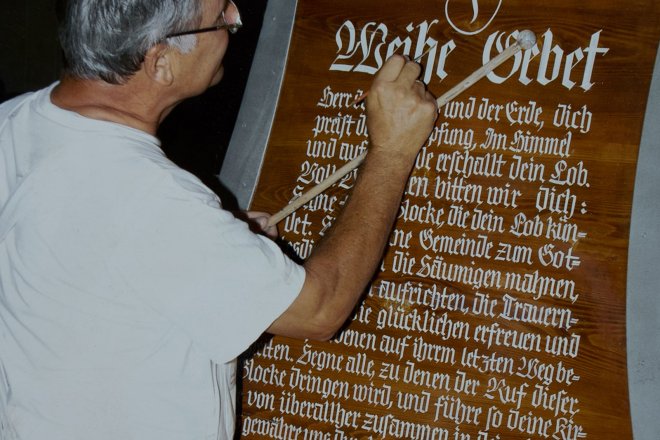 Weihe Gebet
Herr und der Erde, dich
preist pfung, Im Himmel
und auf de erschallt dein Lob.
Voll en bitten wir dich:
Segne locke, die dein Lob kün-
det. ne Gemeinde zum Got-
die Säumigen mahnen,
aufrichten die Trauern-
ie glücklichen erfreuen und
benen auf ihrem letzten Weg be-
iten. Segne alle, zu denen der Ruf dieser
Glocke dringen wird, und führe so deine Kir-
von überallher zusammen in